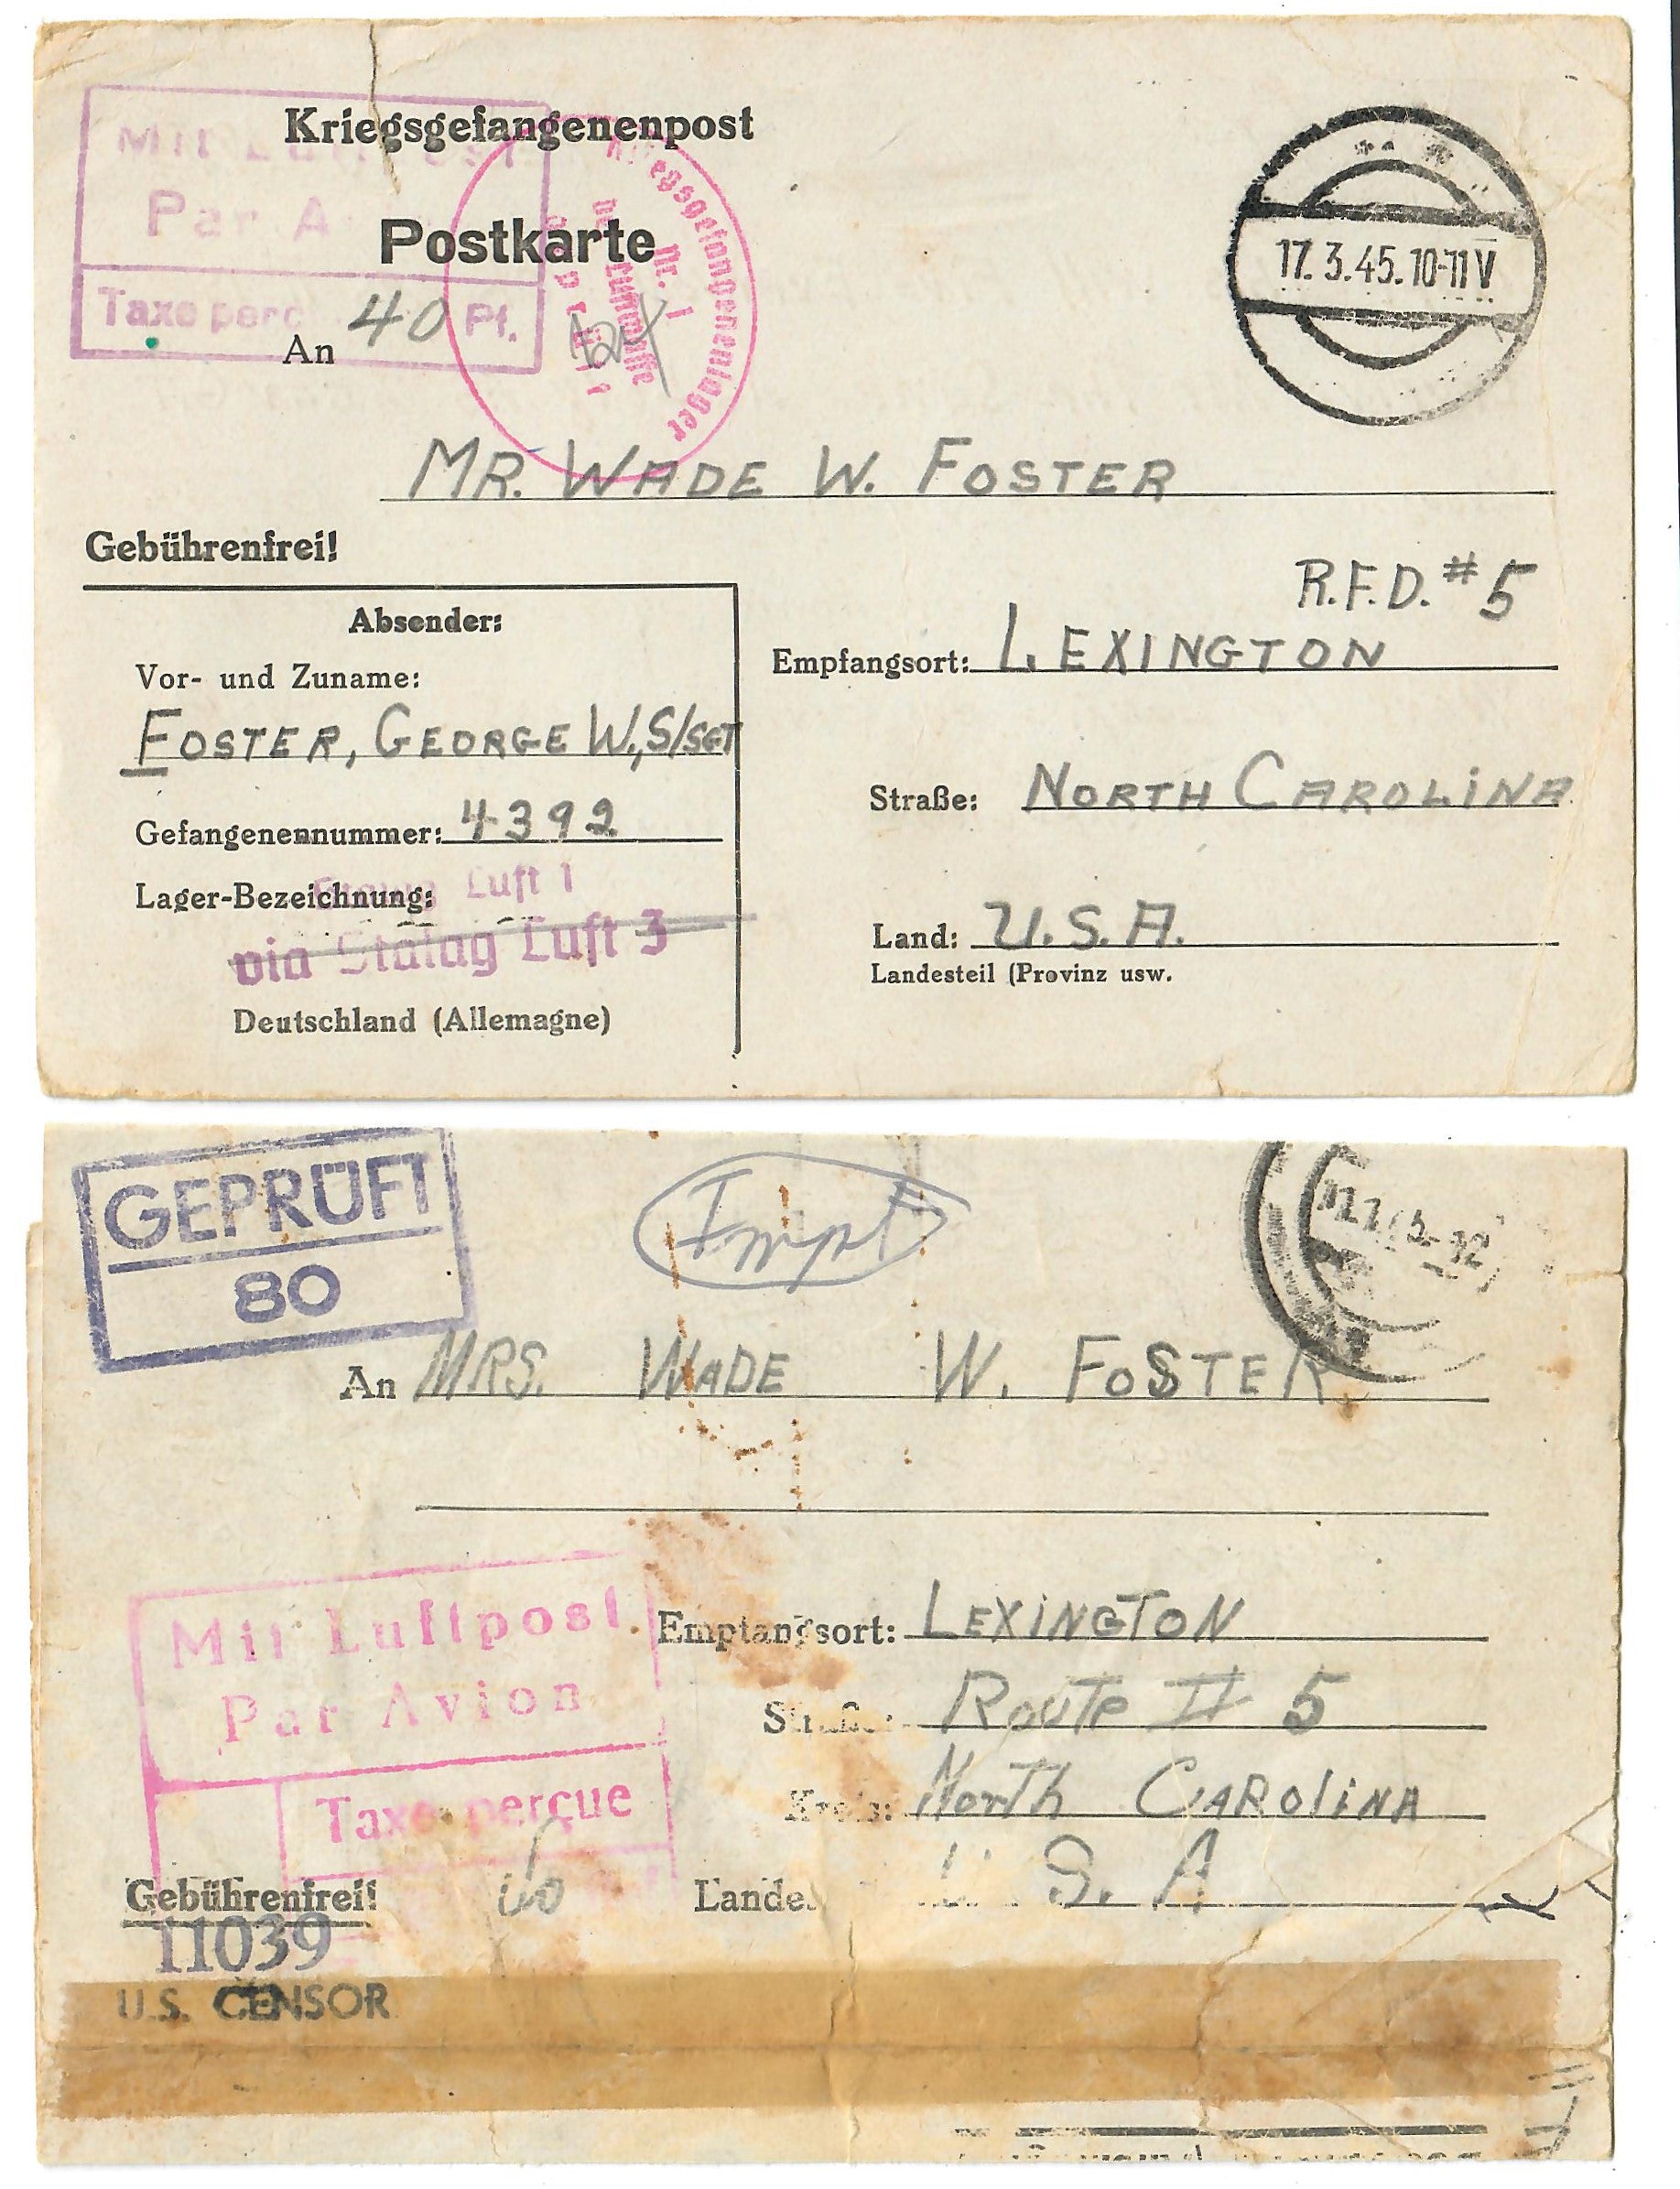 Kriegsgefangenenpost
Mit
Par A
Postkarte
Taxe perc 40 Pf.
Kriegsgefangenenlager
Nr. 1
An
17. 3.45.10-11 V
MR. WADE W. FOSTER
Gebührenfrei!
R.F.D. #5
Absender:
Empfangsort: LEXINGTON
Vor- und Zuname:
FOSTER, GEORGE W., S/SGT
Straße: NORTH CAROLINA
Gefangenennummer: 4392
Lager-Bezeichnung:
Stalag Luft 1
via Stalag Luft 3
Land: U.S.A.
Landesteil (Provinz usw.
Deutschland (Allemagne)
GEPRÜFT
80
Impt
An MRS. WADE W. FOSTER
Mit Luftpost
Par Avion
Taxe perçue
Empfangsort: LEXINGTON
Straße: ROUTE # 5
Kreis: North CAROLINA
Gebührenfrei!
Lande. U. S. A
11039
U.S. CENSOR